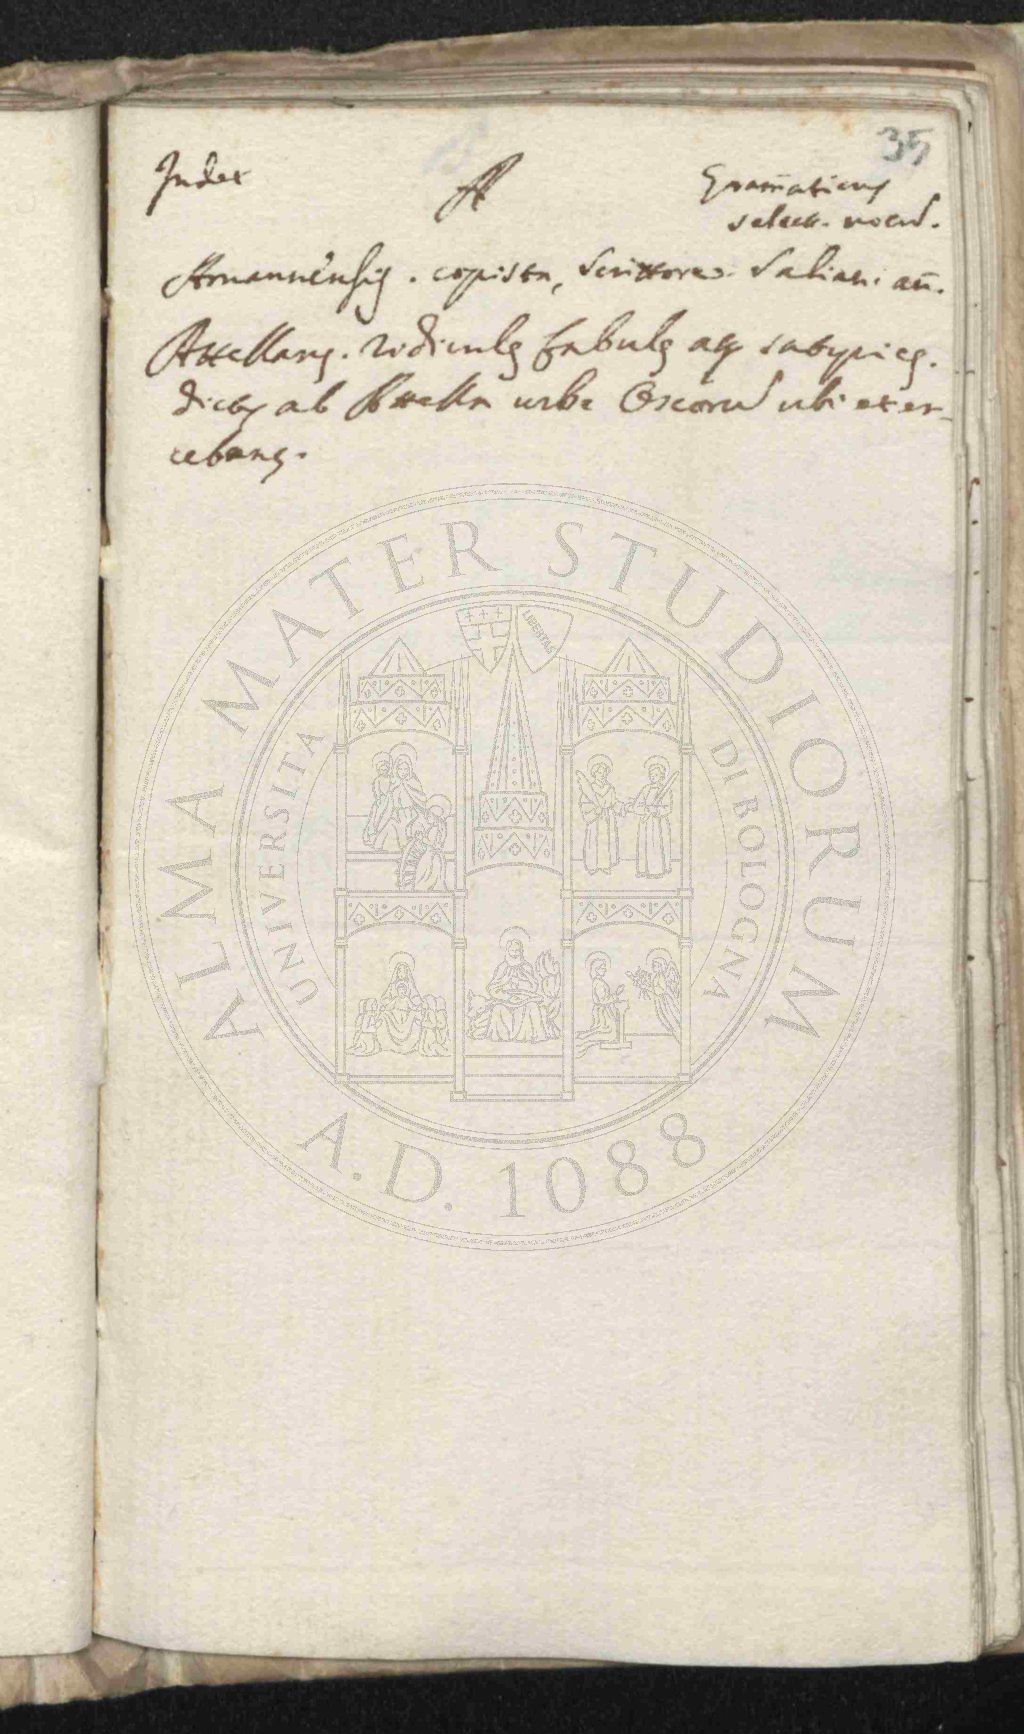 35
Index A Gram̄aticus
select. vocu.
copista, Scrittore. Salian. an̄.
Attellanę. ridiculę fabulę atq satyricę.
dictę ab Attella urbe Oscoru ubi exer-
cebanę.
ALMA MATER STUDIORUM
UNIVERSITA DI BOLOGNA
LIBERTAS
A.D. 1088